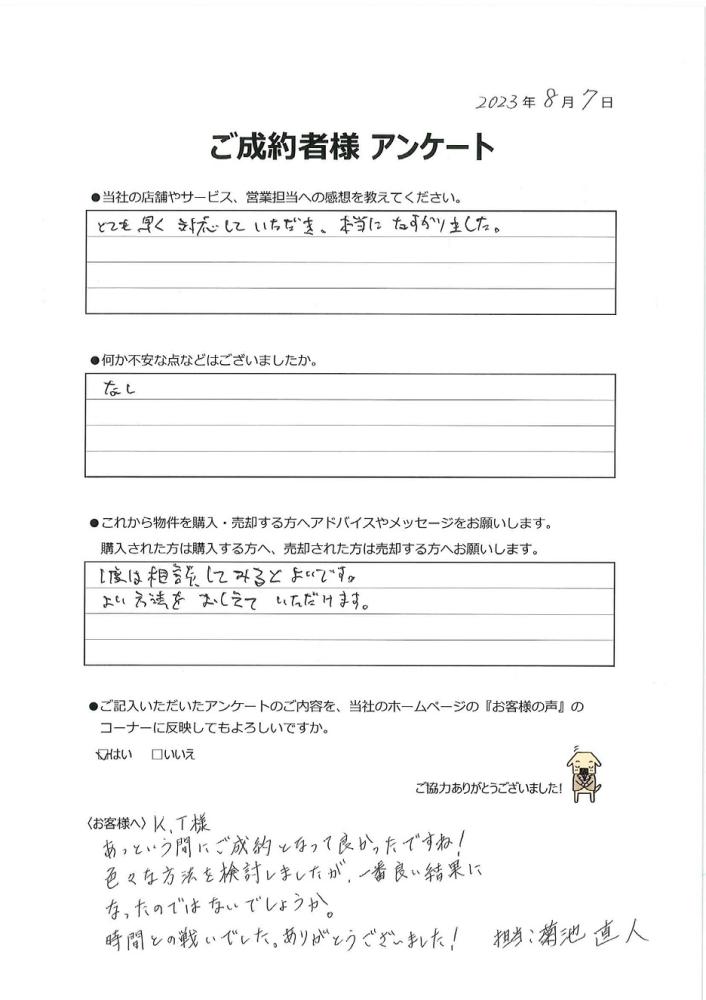 2023年8月7日
ご成約者様 アンケート
●当社の店舗やサービス、営業担当への感想を教えてください。
とても早く対応していただき、本当にたすかりました。
●何か不安な点などはございましたか。
なし
●これから物件を購入・売却する方へアドバイスやメッセージをお願いします。
購入された方は購入する方へ、売却された方は売却する方へお願いします。
1度は相談してみるとよいです。
よい方法をおしえていただけます。
●ご記入いただいたアンケートのご内容を、当社のホームページの『お客様の声』の
コーナーに反映してもよろしいですか。
☑はい □いいえ
ご協力ありがとうございました!
〈お客様へ〉K.T様
あっという間にご成約となって良かったですね!
色々な方法を検討しましたが、一番良い結果に
なったのではないでしょうか。
時間との戦いでした。ありがとうございました! 担当:菊池直人